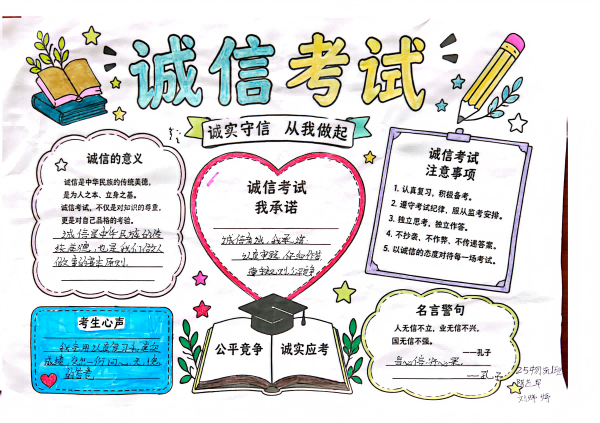 诚信考试
诚实守信 从我做起
诚信的意义
诚信是中华民族的传统美德，
是为人之本、立身之基。
诚信考试，不仅是对知识的尊重，
更是对自己品格的考验。
诚信是中华民族的传
统美德，也是我们做人
做事的基本原则
诚信考试
我承诺
诚信考试，我承诺
诚信考试
注意事项
1. 认真复习，积极备考。
2. 遵守考试纪律，服从监考安排。
3. 独立思考，独立作答。
4. 不抄袭、不作弊、不传递答案。
5. 以诚信的态度对待每一场考试。
考生心声
公平竞争
诚实应考
名言警句
人无信不立，业无信不兴，
国无信不强。
——孔子
——孔子